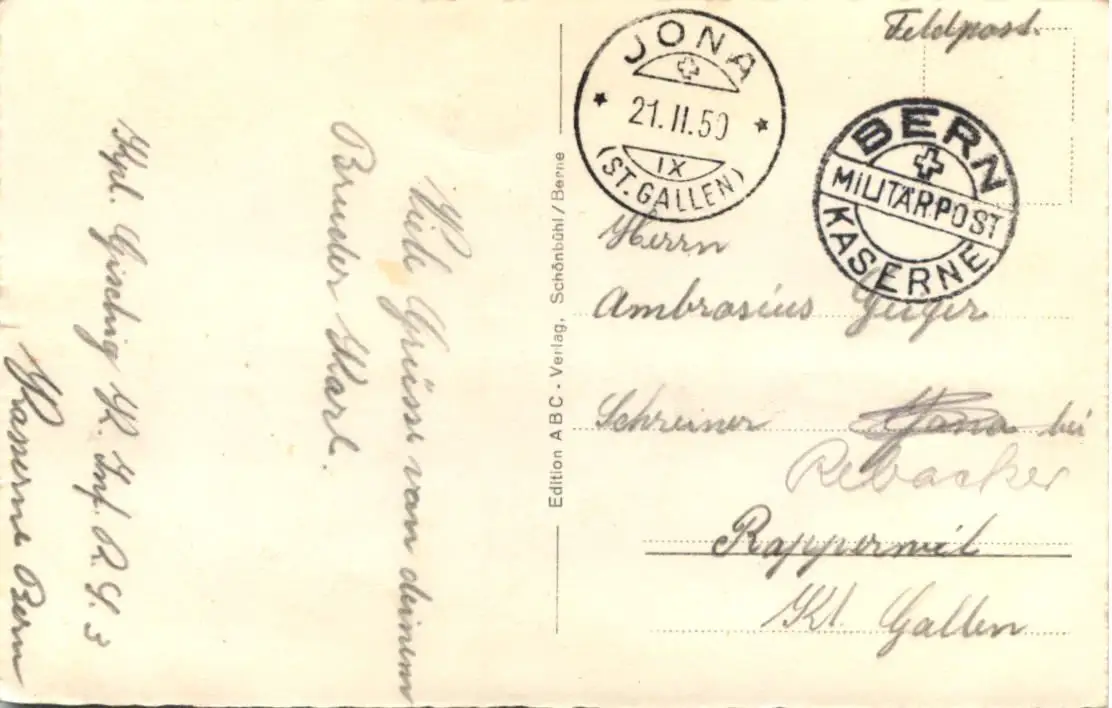 Viele Grüsse von deinem
Bruder Karl.
Kpl. Gisching K. Inf. R. S. 3
Kaserne Bern
Edition ABC - Verlag, Schönbühl / Berne
JONA
21.II.50
IX
(ST. GALLEN)
Feldpost.
BERN
MILITÄRPOST
KASERNE
Herrn
Ambrosius Geiger
Schreiner Jona bei
Rebacker
Rapperswil
Kt. Gallen